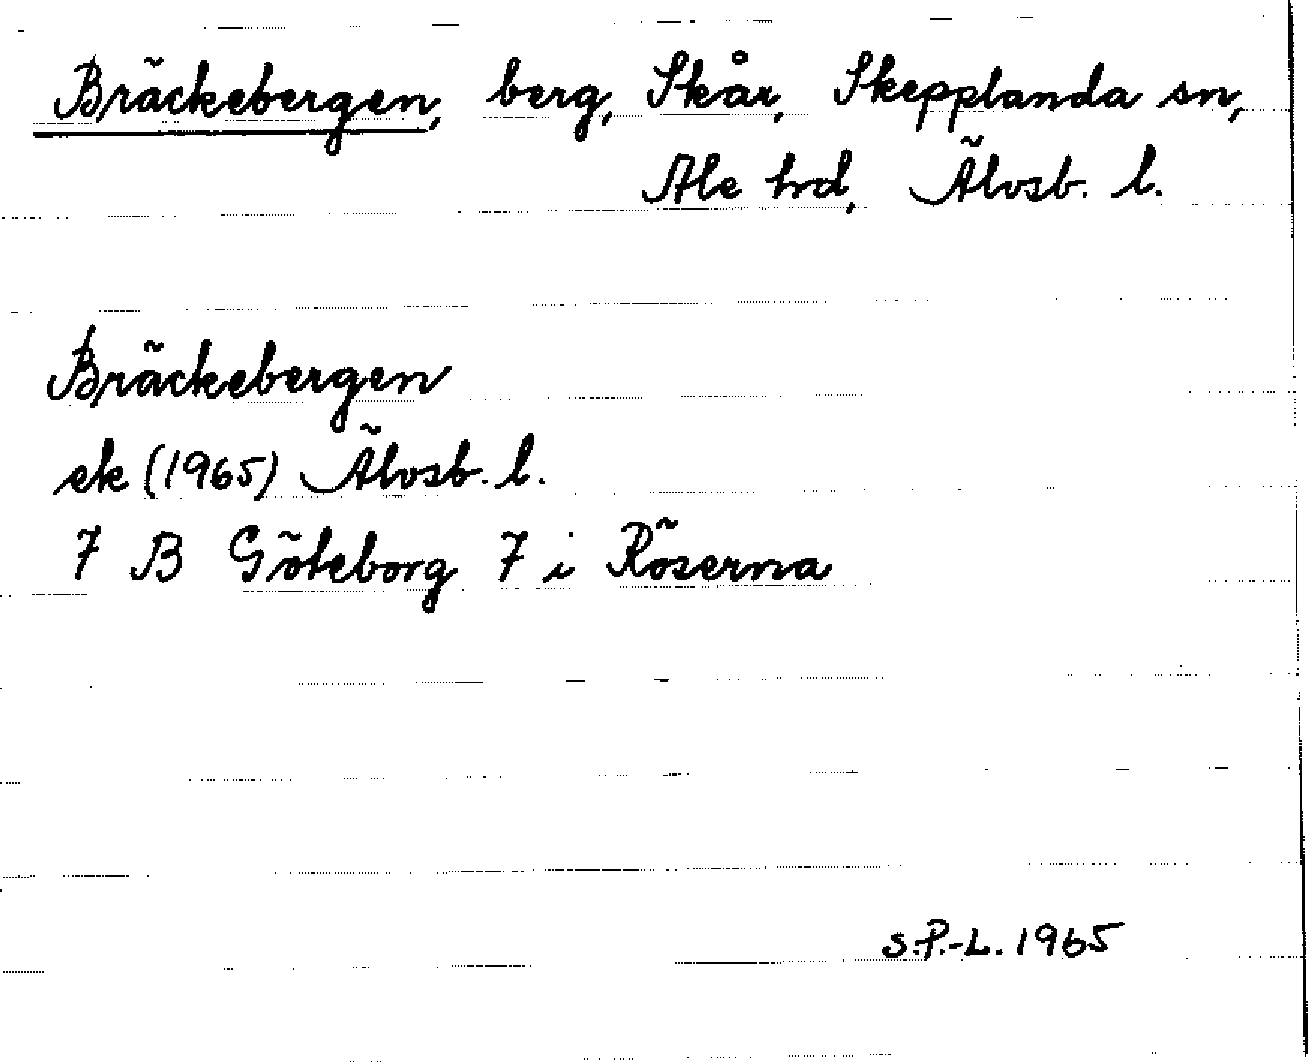 Bräckebergen, berg, Skår, Skepplanda sn,
Ale hrd, Älvsb. l.
Bräckebergen
ek (1965) Älvsb. l.
7 B Göteborg 7 i Röserna
S.P.-L. 1965